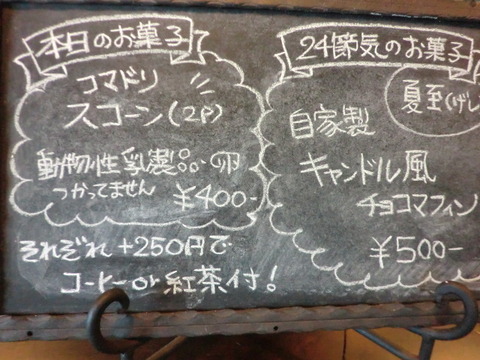 本日のお菓子
コマドリ
スコーン(2P)
動物性乳製品・卵
つかってません
¥400-
24節気のお菓子
夏至(げし
自家製
キャンドル風
チョコマフィン
¥500-
それぞれ+250円で
コーヒーor紅茶付!